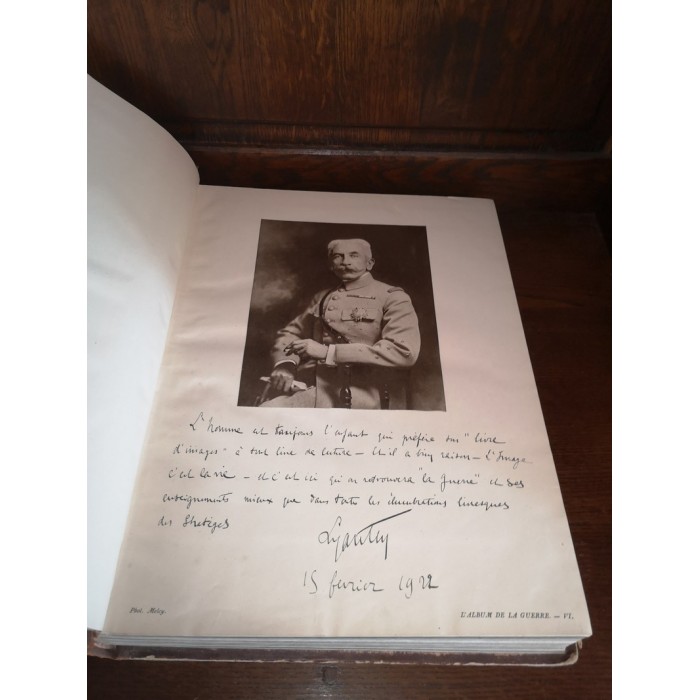 L'homme est toujours l'enfant qui préfère son "livre
d'images" à tout livre de lecture — Et il a bien raison — L'Image
c'est la vie — et c'est ici qu'on retrouvera "la Guerre" et ses
enseignements mieux que dans toutes les élucubrations livresques
des Stratèges
Lyautey
15 février 1922
Phot. Melcy.
L'ALBUM DE LA GUERRE. — VI.